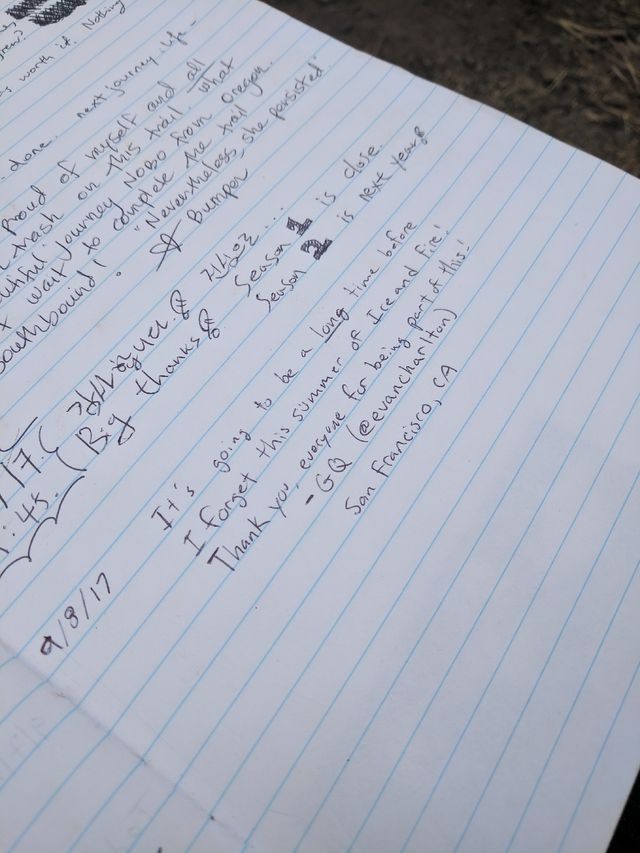 worth it. Nothing
done. next journey. Life -
proud of myself and all
trash on this trail. What
journey NOBO from Oregon.
wait to complete the trail
southbound! "Nevertheless, she persisted"
Bumper
감사합니다.
(Big thanks
Season 1 is close.
Season 2 is next year
9/8/17
It's going to be a long time before
I forget this summer of Ice and Fire!
Thank you, everyone for being part of this!
- GQ (@evancharlton)
San Francisco, CA